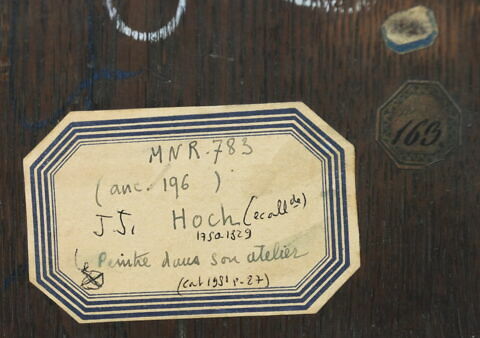 169.
MNR.783
(anc. 196 )
J.J. Hoch (ecoll de)
1750.1829
Le Peintre dans son atelier
(cat 1981 p. 27)